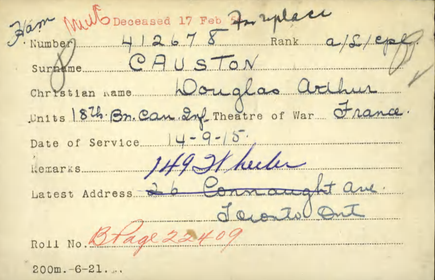 Ham Deceased 17 Feb Fireplace
Number 412678 Rank a/L/Cpl.
Surname CAUSTON
Christian Name Douglas Arthur
Units 18th. Bn. Can. Inf. Theatre of War France.
Date of Service 14-9-15.
Remarks
149 Wheeler
Latest Address 26 Connaught Ave.
Toronto Ont
Roll No. B Page 22409
200m.-6-21.